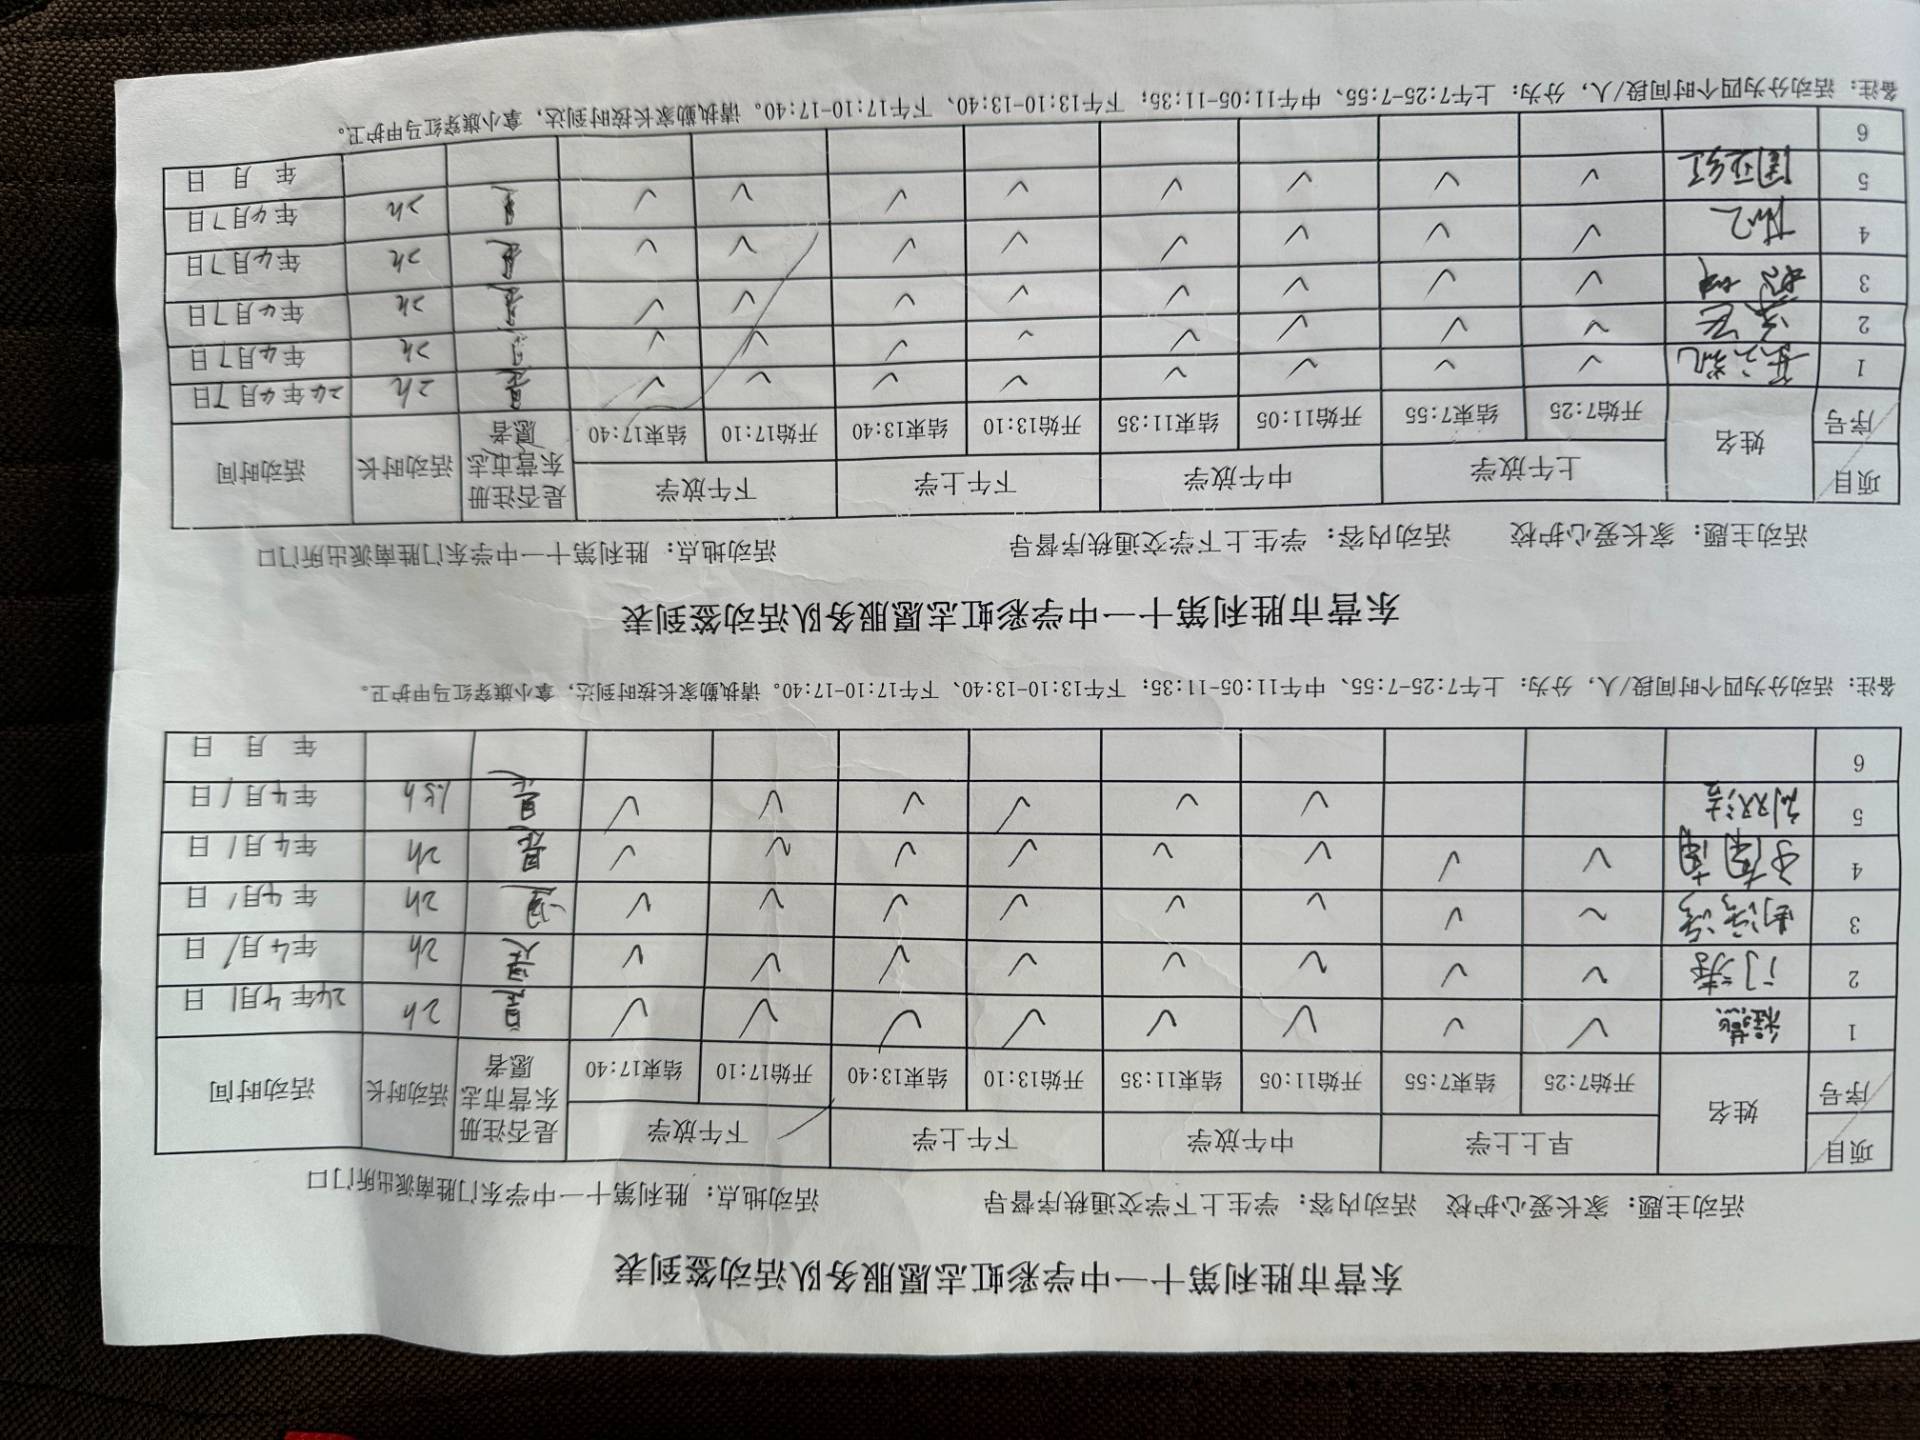 东营市胜利第十一中学彩虹志愿服务队活动签到表
活动主题：家长爱心护校 活动内容：学生上下学交通秩序督导 活动地点：胜利第十一中学东门胜南派出所门口
项目 姓名 早上上学 中午放学 下午上学 下午放学 是否注册东营市志愿者 活动时长 活动时间
序号 开始7:25 结束7:55 开始11:05 结束11:35 开始13:10 结束13:40 开始17:10 结束17:40
1 ✓ ✓ ✓ ✓ ✓ ✓ ✓ ✓ 是 2h 24年4月1日
2 ✓ ✓ ✓ ✓ ✓ ✓ ✓ ✓ 是 2h 年4月1日
3 ✓ ✓ ✓ ✓ ✓ ✓ ✓ ✓ 是 2h 年4月1日
4 ✓ ✓ ✓ ✓ ✓ ✓ ✓ ✓ 是 2h 年4月1日
5 ✓ ✓ ✓ ✓ ✓ ✓ 是 1.5h 年4月1日
6 年 月 日
备注：活动分为四个时间段/人，分为：上午7:25-7:55、中午11:05-11:35；下午13:10-13:40、下午17:10-17:40。请执勤家长按时到达，拿小旗穿红马甲护卫。
东营市胜利第十一中学彩虹志愿服务队活动签到表
活动主题：家长爱心护校 活动内容：学生上下学交通秩序督导 活动地点：胜利第十一中学东门胜南派出所门口
项目 姓名 上午放学 中午放学 下午上学 下午放学 是否注册东营市志愿者 活动时长 活动时间
序号 开始7:25 结束7:55 开始11:05 结束11:35 开始13:10 结束13:40 开始17:10 结束17:40
1 ✓ ✓ ✓ ✓ ✓ ✓ ✓ ✓ 是 2h 24年4月7日
2 ✓ ✓ ✓ ✓ ✓ ✓ ✓ ✓ 是 2h 年4月7日
3 ✓ ✓ ✓ ✓ ✓ ✓ ✓ ✓ 是 2h 年4月7日
4 ✓ ✓ ✓ ✓ ✓ ✓ ✓ ✓ 是 2h 年4月7日
5 ✓ ✓ ✓ ✓ ✓ ✓ ✓ ✓ 是 2h 年4月7日
6 年 月 日
备注：活动分为四个时间段/人，分为：上午7:25-7:55、中午11:05-11:35；下午13:10-13:40、下午17:10-17:40。请执勤家长按时到达，拿小旗穿红马甲护卫。